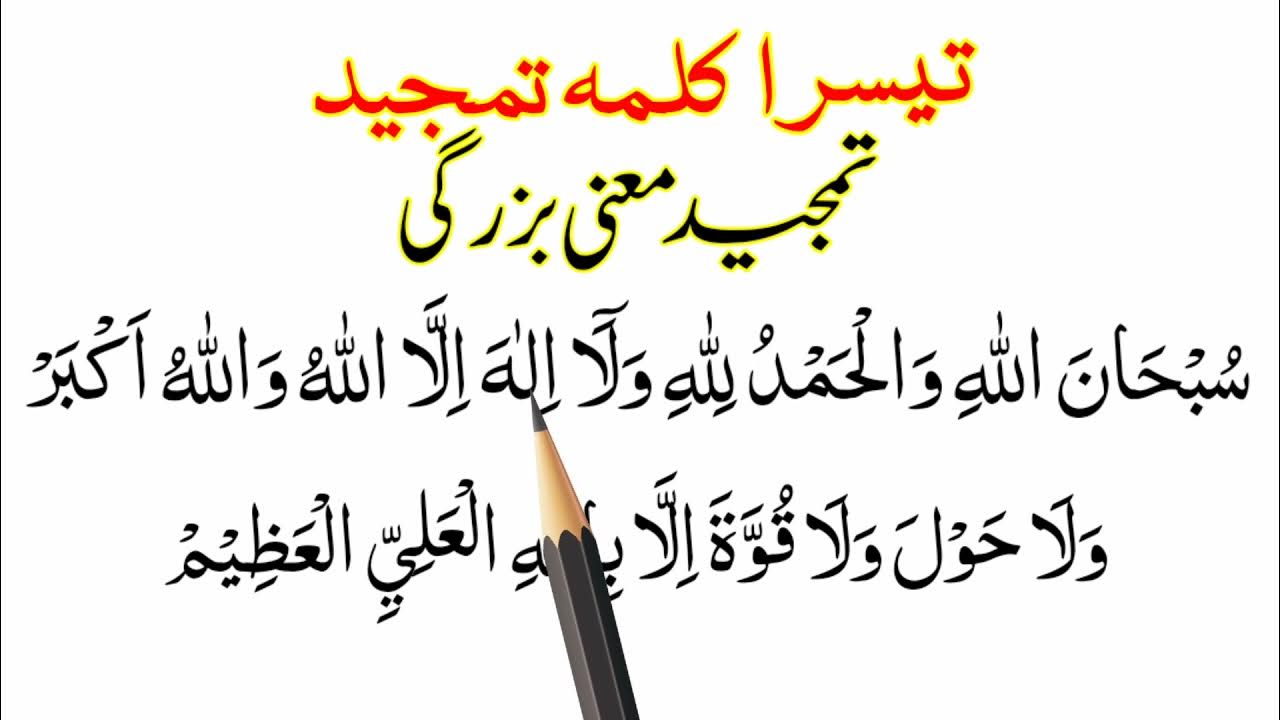 تیسرا کلمہ تمجید
تمجید معنی بزرگی
سُبْحَانَ اللّٰهِ وَالْحَمْدُ لِلّٰهِ وَلَآ اِلٰهَ اِلَّا اللّٰهُ وَاللّٰهُ اَكْبَرْ
وَلَا حَوْلَ وَلَا قُوَّةَ اِلَّا الْعَلِيِّ الْعَظِيْمْ